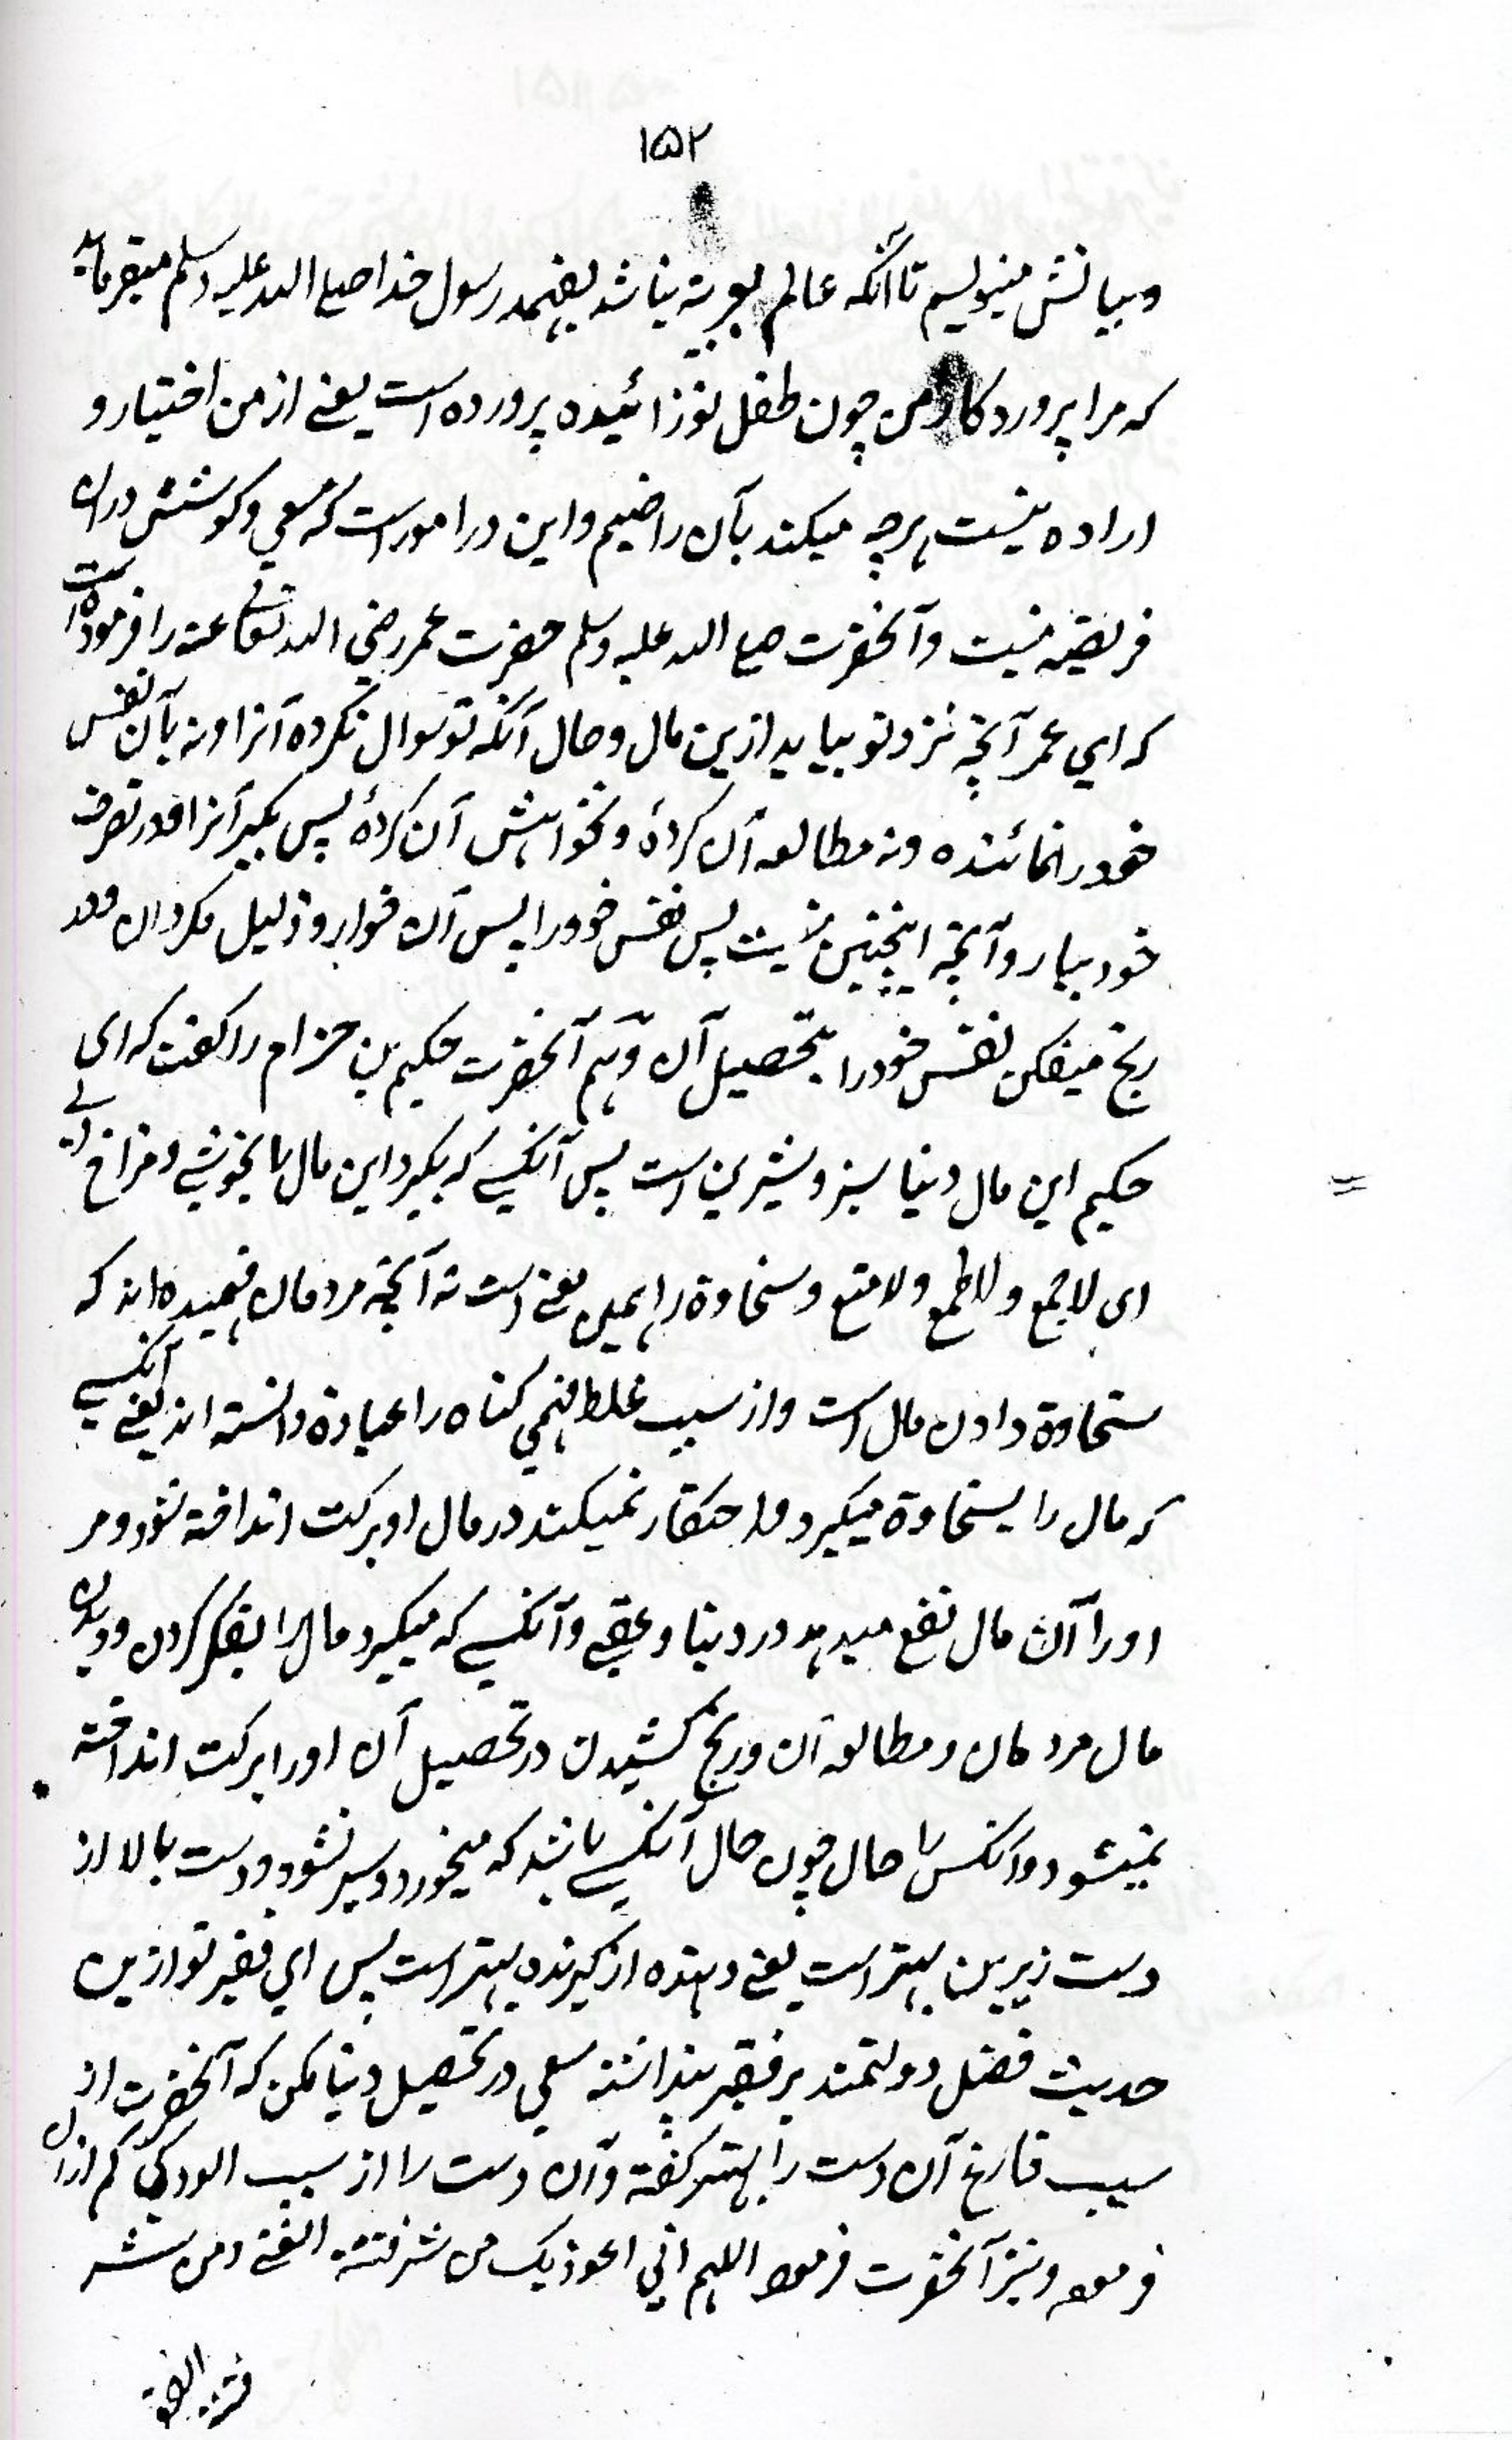 ۱۵۲
وبیانش مینویسم تا آنکه عالم بعربیة نباشد بفهمد رسول خدا صلی الله علیه وسلم میفرماید
که مرا پروردکار من چون طفل نوزائیده پرورده است یعنی از من اختیار و
اراده نیست هرچه میکند بآن راضیم واین در امور است که سعی وکوشش دران
فریضه نیست وآنحضرت صلی الله علیه وسلم حضرت عمر رضی الله تعالی عنه را فرموده است
که ای عمر آنچه نزد تو بیاید ازین مال وحال آنکه تو سوال نکرده آنرا ونه بآن نفس
خود را نمائنده ونه مطالعه آن کردهٔ ونخواهش آن کردهٔ پس بکیر آنرا ودر تصرف
خود بیار وآنچه اینچنین نیست پس نفس خود را پس آن خوار وذلیل مکردان ودر
رنج میفکن نفس خود را بتحصیل آن وهم آنحضرت حکیم بن حزام را کفت که ای
حکیم این مال دنیا سبز وشیرین است پس آنکسی که بکیرد این مال را بخوشی وفراخ دلی
ای لا جمع ولا طمع ولا منع وسخاوة را همین معنی است نه آنچه مردمان فهمیده اند که
سخاوة دادن مال است واز سبب غلط فهمی کناه را عبادة دانسته اند یعنی آنکسی
که مال را بسخاوة میکیرد واحتکار نمیکند در مال او برکت انداخته شود ومر
او را آن مال نفع میدهد در دنیا وعقبی وآنکسی که میکیرد مال را بفکر کردن ودیدن
مال مردمان ومطالعه آن ورنج کشیدن در تحصیل آن او را برکت انداخته
نمیشود وآنکس را حال چون حال آنکسی باشد که میخورد وسیر نشود ودست بالا از
دست زیرین بهتر است یعنی دهنده از کیرنده بهتر است پس ای فقیر تو ازین
حدیث فضل دولتمند بر فقیر پنداشته سعی در تحصیل دنیا مکن که آنحضرت از
سبب فارغ آن دست را بهتر کفته وآن دست را از سبب الودکی کم ازان
فرموده ونیز آنحضرت فرمود اللهم انی اعوذ بک من شر فتنة الغنی ومن شر
فتنة الفقر